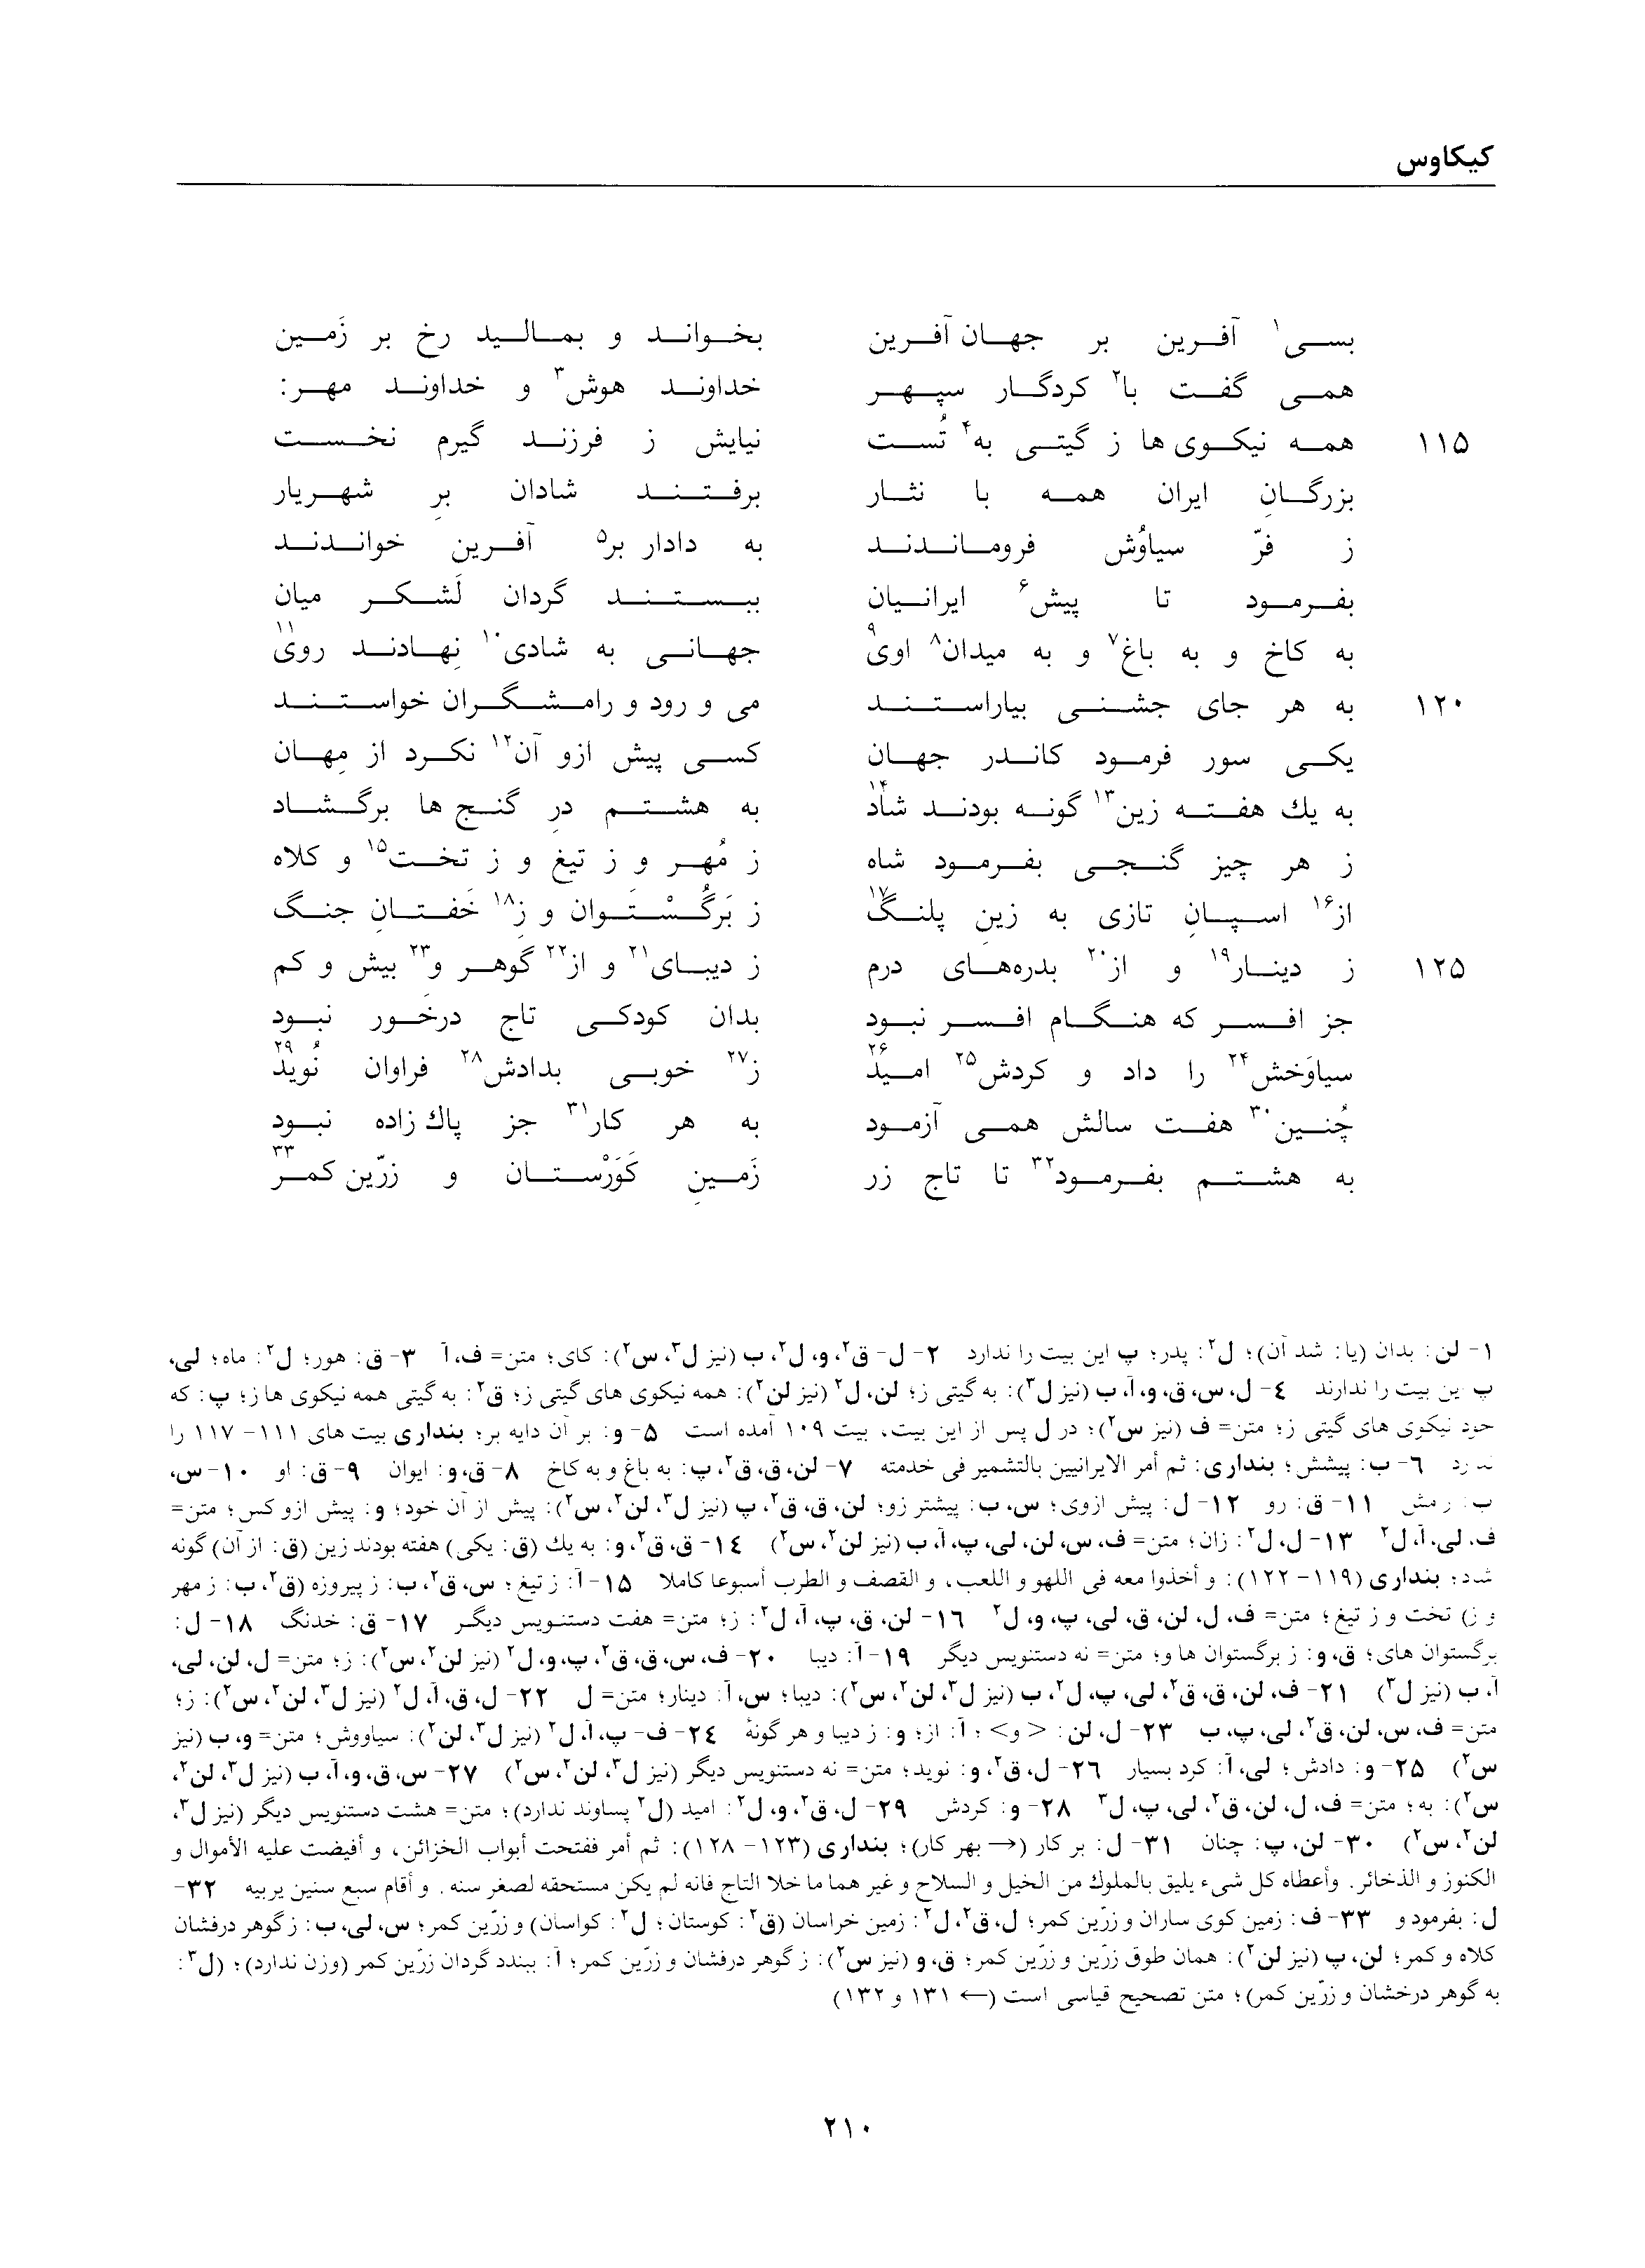 کیکاوس
بسی۱ آفرین بر جهان آفرین بخواند و بمالید رخ بر زَمین
همی گفت با۲ کردگار سپهر خداوند هوش۳ و خداوند مهر:
۱۱۵ همه نیکوی ها ز گیتی به۴ تُست نیایش ز فرزند گیرم نخست
بزرگانِ ایران همه با نثار برفتند شادان برِ شهریار
ز فرّ سیاوُش فروماندند به دادار بر۵ آفرین خواندند
بفرمود تا پیش۶ ایرانیان ببستند گردان لَشکر میان
به کاخ و به باغ۷ و به میدان۸ اوی۹ جهانی به شادی۱۰ نِهادند روی۱۱
۱۲۰ به هر جای جشنی بیاراستند می و رود و رامشگران خواستند
یکی سور فرمود کاندر جهان کسی پیش ازو آن۱۲ نکرد از مِهان
به یك هفته زین۱۳ گونه بودند شاد۱۴ به هشتم درِ گنج ها برگشاد
ز هر چیز گنجی بفرمود شاه ز مُهر و ز تیغ و ز تخت۱۵ و کلاه
از۱۶ اسپانِ تازی به زینِ پلنگ۱۷ ز بَرگُسْتَوان و ز۱۸ خَفتانِ جنگ
۱۲۵ ز دینار۱۹ و از۲۰ بدره‌های درم ز دیبای۲۱ و از۲۲ گوهر و۲۳ بیش و کم
جز افسر که هنگام افسر نبود بدان کودکی تاج درخَور نبود
سیاوَخش۲۴ را داد و کردش۲۵ امید۲۶ ز۲۷ خوبی بدادش۲۸ فراوان نُوید۲۹
چُنین۳۰ هفت سالش همی آزمود به هر کار۳۱ جز پاك زاده نبود
به هشتم بفرمود۳۲ تا تاج زر زَمینِ کَوَرْستان و زرّین کمر۳۳
۱- لن: بدان (یا: شد آن)؛ ل۲: پدر؛ پ این بیت را ندارد ۲- ل- ق۲، و، ل۲، ب (نیز ل۳، س۲): کای؛ متن= ف، آ ۳- ق: هور؛ ل۲: ماه؛ لی،
پ ین بیت را ندارند ٤- ل، س، ق، و، آ، ب (نیز ل۳): به گیتی ز؛ لن، ل۲ (نیز لن۲): همه نیکوی های گیتی ز؛ ق۲: به گیتی همه نیکوی ها ز؛ پ: که
خود نیکوی های گیتی ز؛ متن= ف (نیز س۲)؛ در ل پس از این بیت، بیت ۱۰۹ آمده است ۵- و: بر آن دایه بر؛ بنداری بیت های ۱۱۱- ۱۱۷ را
ندارد ٦- ب: پیشش؛ بنداری: ثم أمر الایرانیین بالتشمیر فی خدمته ۷- لن، ق، ق۲، پ: به باغ و به کاخ ۸- ق، و: ایوان ۹- ق: او ۱۰- س،
ب: رمش ۱۱- ق: رو ۱۲- ل: پیش ازوی؛ س، ب: پیشتر زو؛ لن، ق، ق۲، پ (نیز ل۳، لن۲، س۲): پیش از آن خود؛ و: پیش ازو کس؛ متن=
ف، لی، آ، ل۲ ۱۳- ل، ل۲: زان؛ متن= ف، س، لن، لی، پ، آ، ب (نیز لن۲، س۲) ۱٤- ق، ق۲، و: به یك (ق: یکی) هفته بودند زین (ق: از آن) گونه
شد؛ بنداری (۱۱۹- ۱۲۲): و أخذوا معه فی اللهو و اللعب، و القصف و الطرب أسبوعا کاملا ۱۵- آ: ز تیغ؛ س، ق۲، ب: ز پیروزه (ق۲، ب: ز مهر
و ز) تخت و ز تیغ؛ متن= ف، ل، لن، ق، لی، پ، و، ل۲ ۱٦- لن، ق، پ، آ، ل۲: ز؛ متن= هفت دستنویس دیگر ۱۷- ق: خدنگ ۱۸- ل:
برگستوان های؛ ق، و: ز برگستوان ها و؛ متن= نه دستنویس دیگر ۱۹- آ: دیبا ۲۰- ف، س، ق، ق۲، پ، و، ل۲ (نیز لن۲، س۲): ز؛ متن= ل، لن، لی،
آ، ب (نیز ل۳) ۲۱- ف، لن، ق، ق۲، لی، پ، ل۲، ب (نیز ل۳، لن۲، س۲): دیبا؛ س، آ: دینار؛ متن= ل ۲۲- ل، ق، آ، ل۲ (نیز ل۳، لن۲، س۲): ز؛
متن= ف، س، لن، ق۲، لی، پ، ب ۲۳- ل، لن: <و>؛ آ: از؛ و: ز دیبا و هر گونهٔ ۲٤- ف- پ، آ، ل۲ (نیز ل۳، لن۲): سیاووش؛ متن= و، ب (نیز
س۲) ۲۵- و: دادش؛ لی، آ: کرد بسیار ۲٦- ل، ق۲، و: نوید؛ متن= نه دستنویس دیگر (نیز ل۳، لن۲، س۲) ۲۷- س، ق، و، آ، ب (نیز ل۳، لن۲،
س۲): به؛ متن= ف، ل، لن، ق۲، لی، پ، ل۲ ۲۸- و: کردش ۲۹- ل، ق۲، و، ل۲: امید (ل۲ پساوند ندارد)؛ متن= هشت دستنویس دیگر (نیز ل۳،
لن۲، س۲) ۳۰- لن، پ: چنان ۳۱- ل: بر کار (→ بهر کار)؛ بنداری (۱۲۳- ۱۲۸): ثم أمر ففتحت أبواب الخزائن، و أفیضت علیه الأموال و
الکنوز و الذخائر. وأعطاه کل شیء یلیق بالملوك من الخیل و السلاح و غیر هما ما خلا التاج فانه لم یکن مستحقه لصغر سنه. و أقام سبع سنین یربیه ۳۲-
ل: بفرمود و ۳۳- ف: زمین کوی ساران و زرّین کمر؛ ل، ق۲، ل۲: زمین خراسان (ق۲: کوستان؛ ل۲: کواسان) و زرّین کمر؛ س، لی، ب: ز گوهر درفشان
کلاه و کمر؛ لن، پ (نیز لن۲): همان طوق زرّین و زرّین کمر؛ ق، و (نیز س۲): ز گوهر درفشان و زرّین کمر؛ آ: ببندد گردان زرّین کمر (وزن ندارد)؛ (ل۳:
به گوهر درخشان و زرّین کمر)؛ متن تصحیح قیاسی است (← ۱۳۱ و ۱۳۲)
۲۱۰